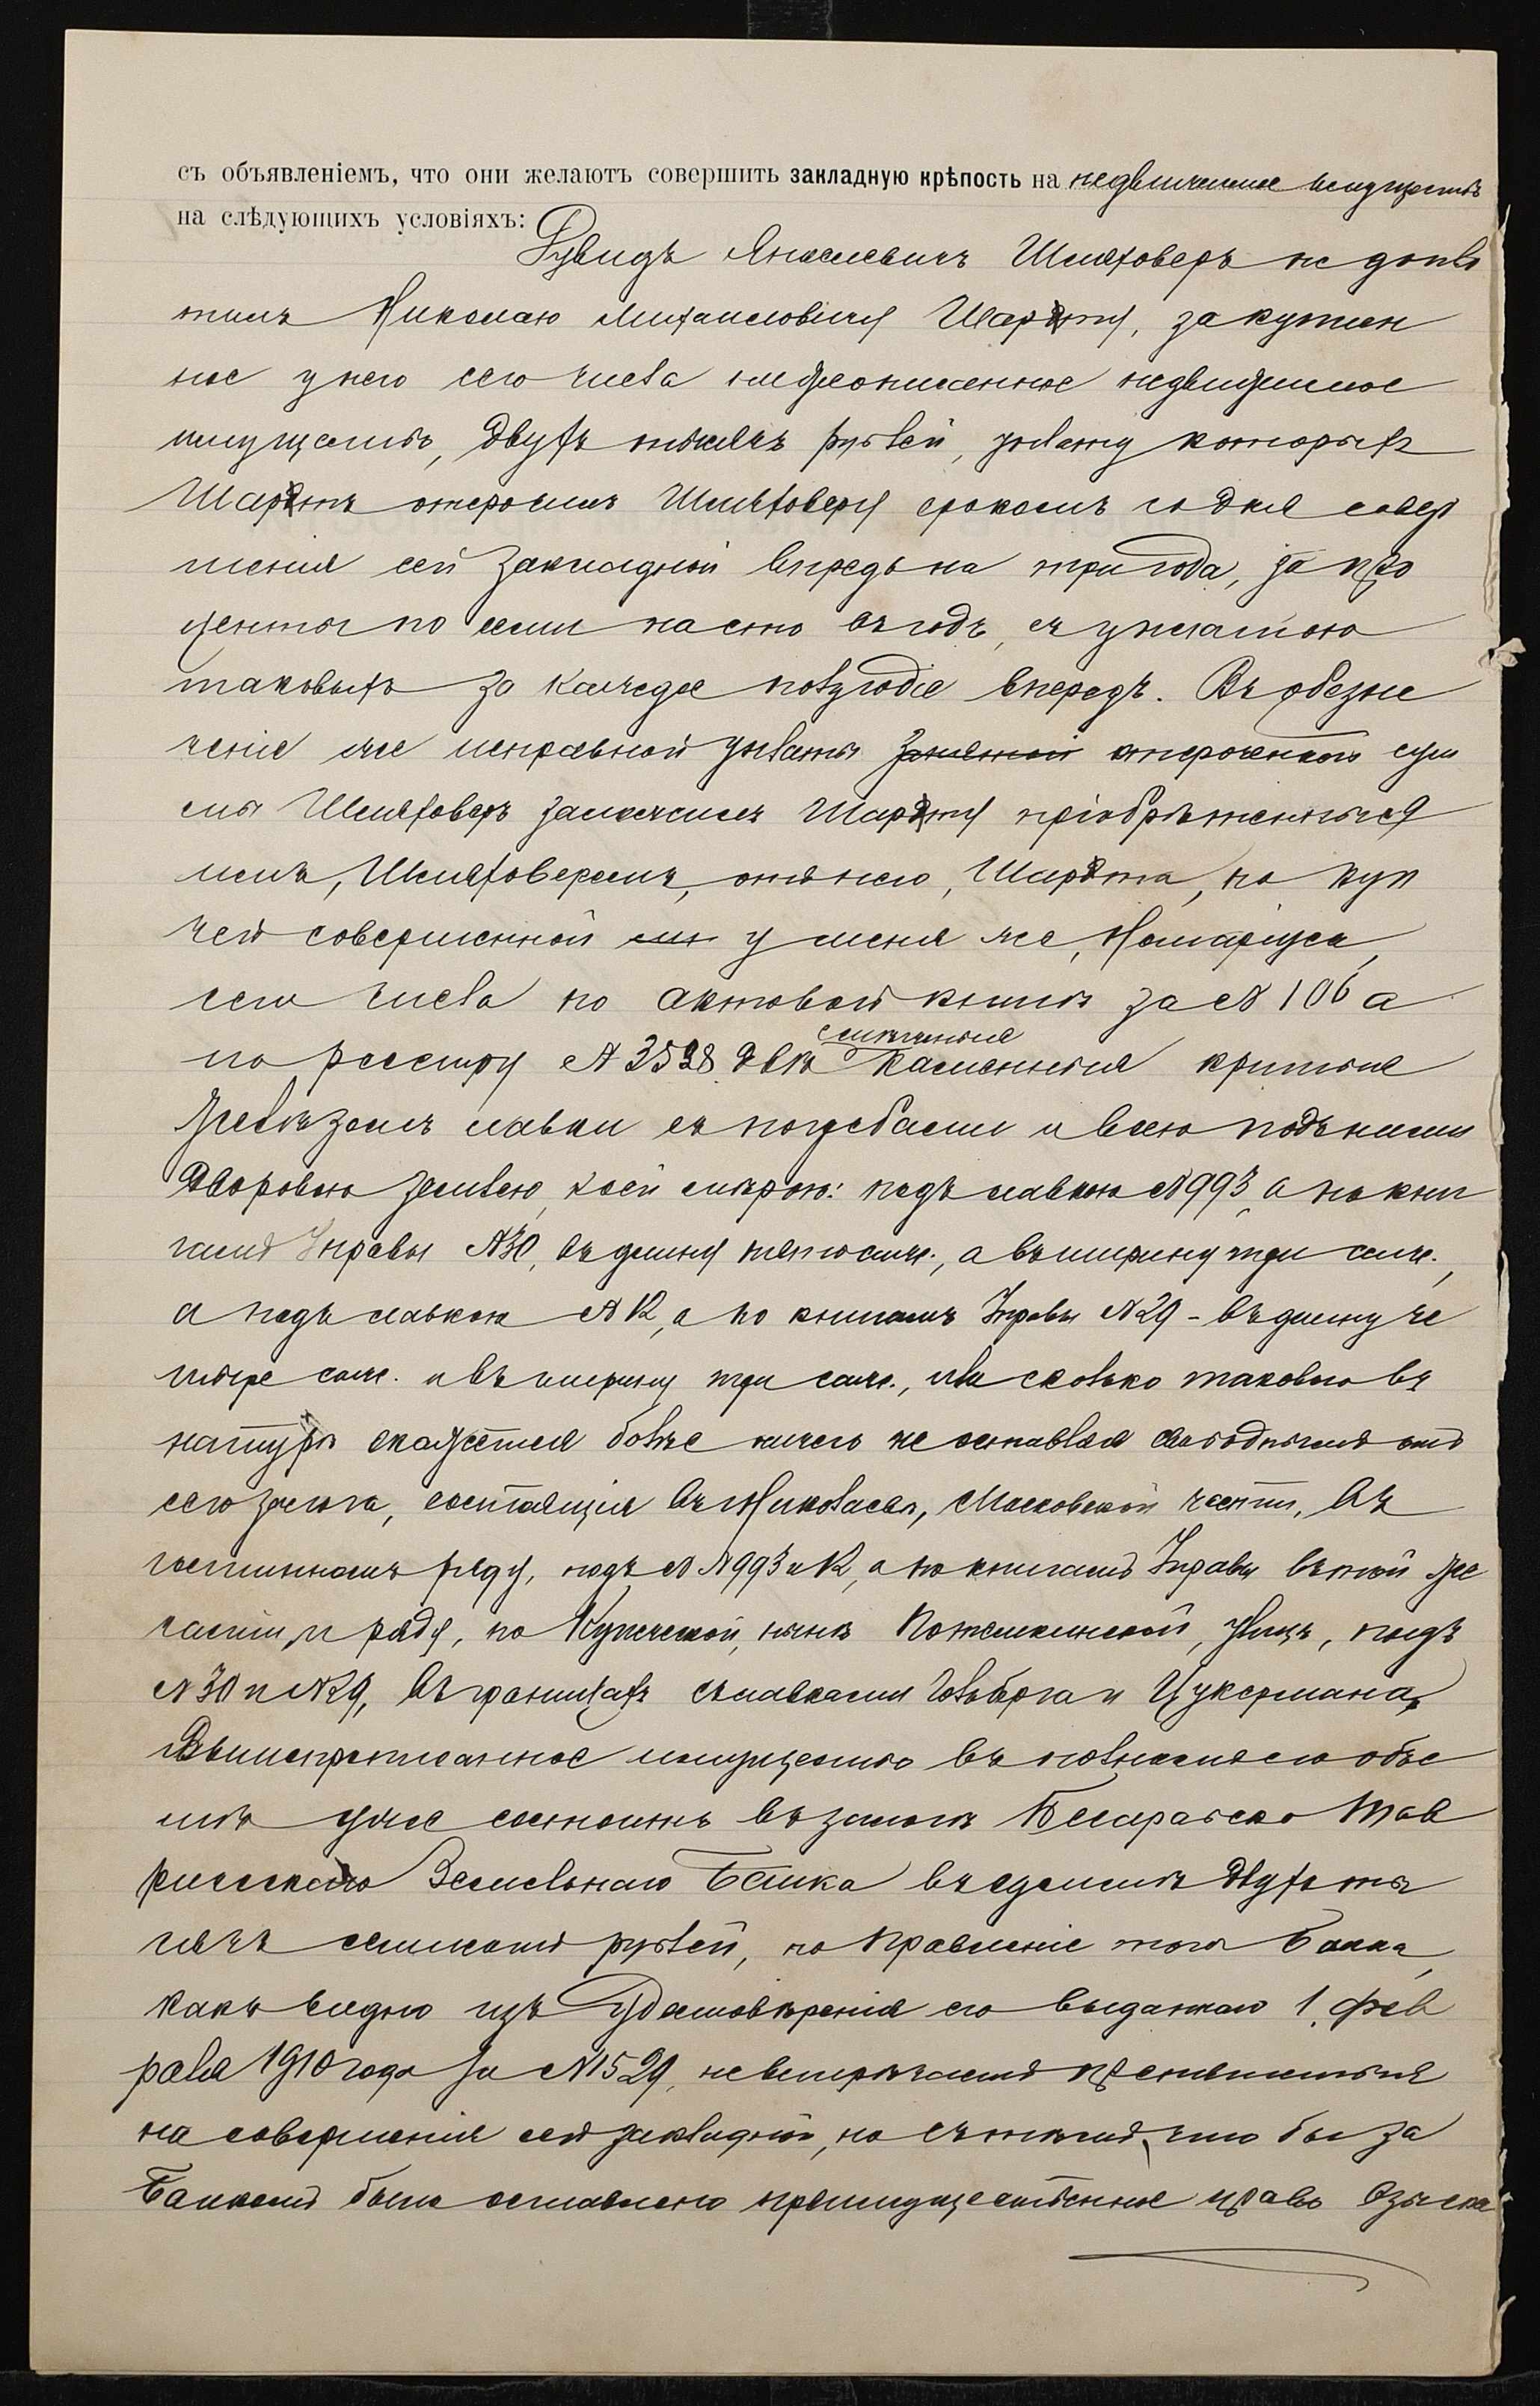 съ объявленіемъ, что они желаютъ совершить закладную крѣпость на недвижимое имущество
на слѣдующихъ условіяхъ:
Рувидъ Янкелевичъ Шмяховеръ не допла
тилъ Николаю Михайловичу Шардту, за куплен
ное у него сего числа нижеописанное недвижимое
имущество, двухъ тысячъ рублей, уплату которыхъ
Шардтъ отсрочилъ Шмяховеру срокомъ со дня совер
шенія сей закладной впредь на три года, за про
центы по семи на сто въ годъ, съ уплатою
таковыхъ за каждое полугодіе впередъ. Въ обезпе
ченіе же исправной уплаты занятой отсроченной сум
мы Шмяховеръ заложилъ Шардту пріобрѣтенныя
имъ, Шмяховеромъ, отъ него, Шардта, по куп
чей совершенной у меня же, Нотаріуса,
сего числа по актовой книгѣ за № 106 а
по реестру № 3528 двѣ смежныя каменныя крытыя
желѣзомъ лавки съ погребами и всею подъ ними
дворовою землею, коей мѣрою: подъ лавкою № 993, а по кни
гамъ Управы № 30, въ длину пять саж., а въ ширину три саж.,
а подъ лавкою № 12, а по книгамъ Управы № 29 - въ длину че
тыре саж. и въ ширину три саж., или сколько таковой въ
натурѣ окажется болѣе ничего не оставляя свободнымъ отъ
сего залога, состоящія въ г. Николаевѣ, Московской части, въ
гостинномъ ряду, подъ №№ 993 и 12, а по книгамъ Управы въ той же
части и ряду, по Купеческой, нынѣ Потемкинской, улицѣ, подъ
№ 30 и № 29, въ границахъ съ лавками Гольберга и Цукермана.
Вышепрописанное имущество въ полномъ его объе
мѣ уже состоитъ въ залогѣ Бессарабско Тав
рическаго Земельнаго Банка въ суммѣ двухъ ты
сячъ семисотъ рублей, но Правленіе того Банка,
какъ видно изъ удостовѣренія его выданнаго 1 фев
раля 1910 года за № 1529, не встрѣчаетъ препятствія
на совершеніе сей закладной, но съ тѣмъ, что бы за
Банкомъ было оставлено преимущественное право взыска